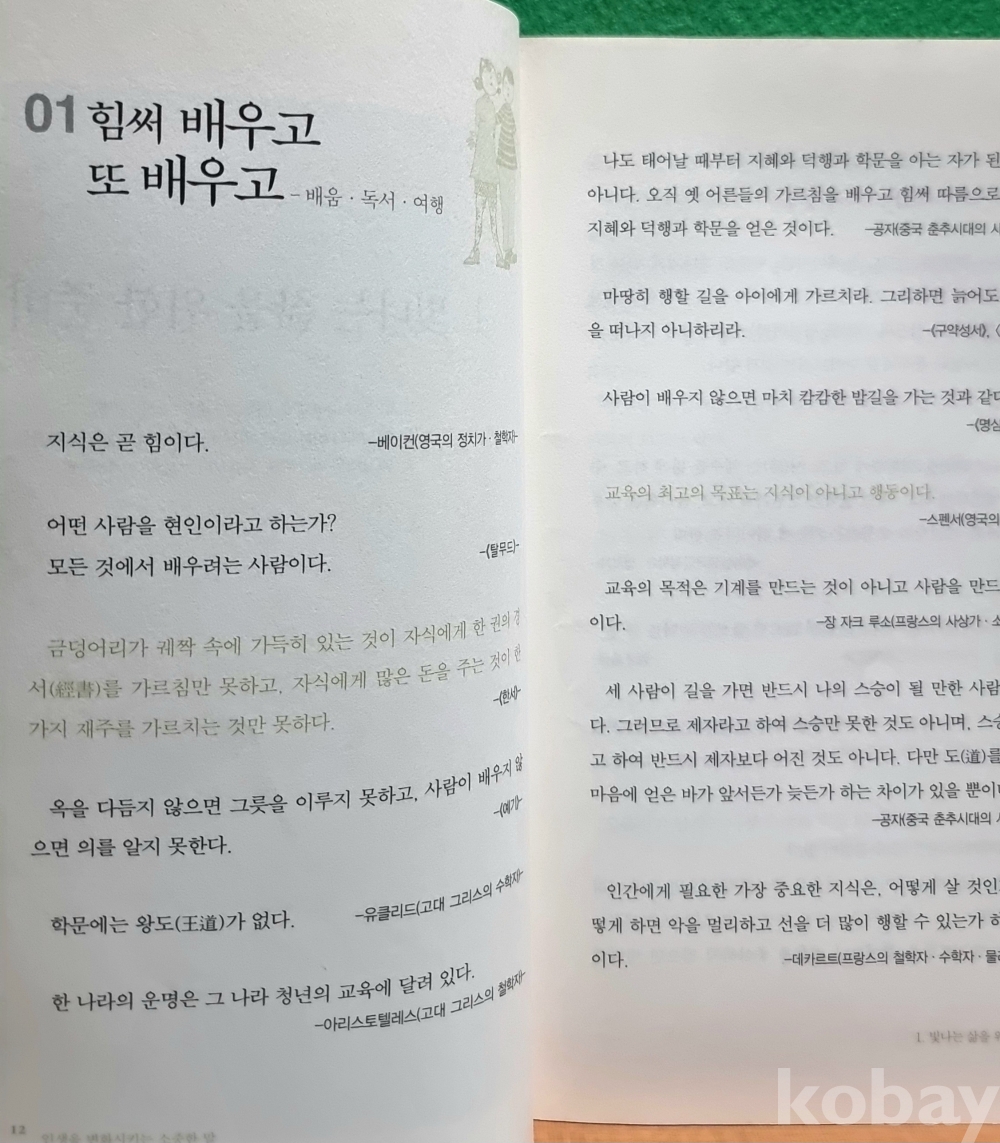 01 힘써 배우고
또 배우고 - 배움 · 독서 · 여행
지식은 곧 힘이다. -베이컨(영국의 정치가 · 철학자)-
어떤 사람을 현인이라고 하는가?
모든 것에서 배우려는 사람이다. -《탈무드》-
금덩어리가 궤짝 속에 가득히 있는 것이 자식에게 한 권의 경
서(經書)를 가르침만 못하고, 자식에게 많은 돈을 주는 것이 한
가지 재주를 가르치는 것만 못하다. -《한서》-
옥을 다듬지 않으면 그릇을 이루지 못하고, 사람이 배우지 않
으면 의를 알지 못한다. -《예기》-
학문에는 왕도(王道)가 없다. -유클리드(고대 그리스의 수학자)-
한 나라의 운명은 그 나라 청년의 교육에 달려 있다.
-아리스토텔레스(고대 그리스의 철학자)-
12 인생을 변화시키는 소중한 말
나도 태어날 때부터 지혜와 덕행과 학문을 아는 자가 된
아니다. 오직 옛 어른들의 가르침을 배우고 힘써 따름으로
지혜와 덕행과 학문을 얻은 것이다. -공자(중국 춘추시대의 사
마땅히 행할 길을 아이에게 가르치라. 그리하면 늙어도
을 떠나지 아니하리라. -《구약성서》,
사람이 배우지 않으면 마치 캄캄한 밤길을 가는 것과 같다
-《명심
교육의 최고의 목표는 지식이 아니고 행동이다.
-스펜서(영국의
교육의 목적은 기계를 만드는 것이 아니고 사람을 만드
이다. -장 자크 루소(프랑스의 사상가 · 소
세 사람이 길을 가면 반드시 나의 스승이 될 만한 사람
다. 그러므로 제자라고 하여 스승만 못한 것도 아니며, 스승
고 하여 반드시 제자보다 어진 것도 아니다. 다만 도(道)를
마음에 얻은 바가 앞서든가 늦든가 하는 차이가 있을 뿐이
-공자(중국 춘추시대의 사
인간에게 필요한 가장 중요한 지식은, 어떻게 살 것인
떻게 하면 악을 멀리하고 선을 더 많이 행할 수 있는가 하
이다. -데카르트(프랑스의 철학자 · 수학자 · 물리
1. 빛나는 삶을 위
kobay